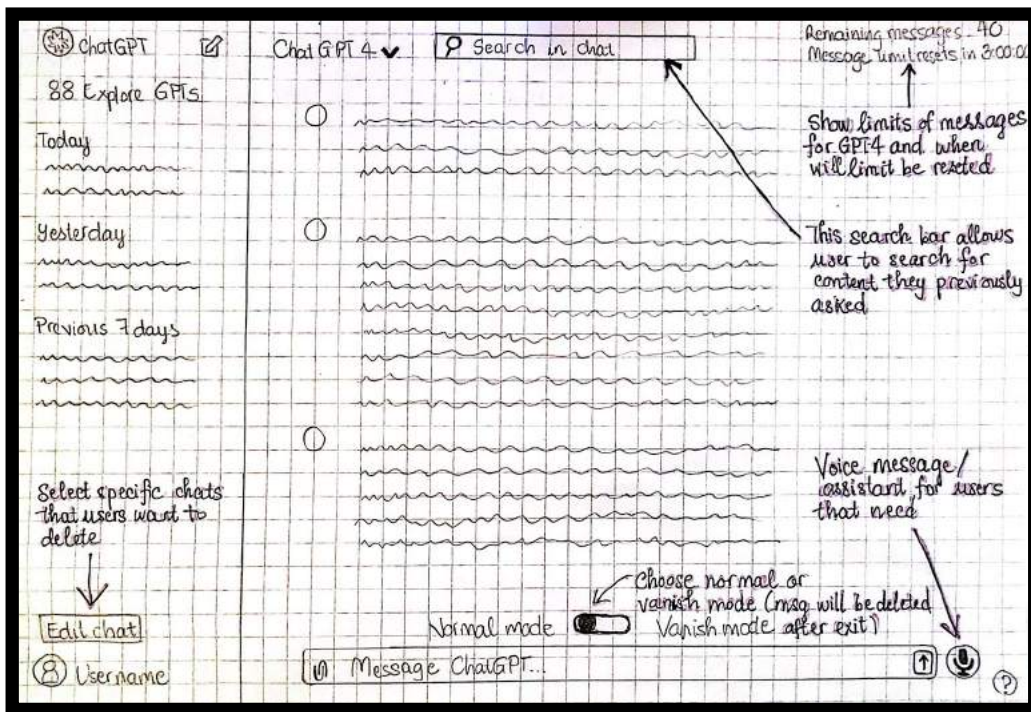 ChatGPT
Explore GPTs
Today
Yesterday
Previous 7 days
Select specific chats
that users want to
delete
Edit chat
Username
Chat GPT 4
Search in chat
Remaining messages 40
Message limit resets in 3:00:00
Show limits of messages
for GPT4 and when
will limit be reseted
This search bar allows
user to search for
content they previously
asked
Voice message/
assistant for users
that need
Choose normal or
vanish mode (msg will be deleted
after exit)
Normal mode
Vanish mode
Message ChatGPT...
?